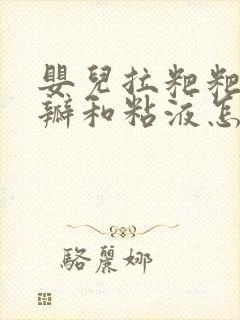 嬰兒拉粑粑
瓣和粘液怎
駱麗娜